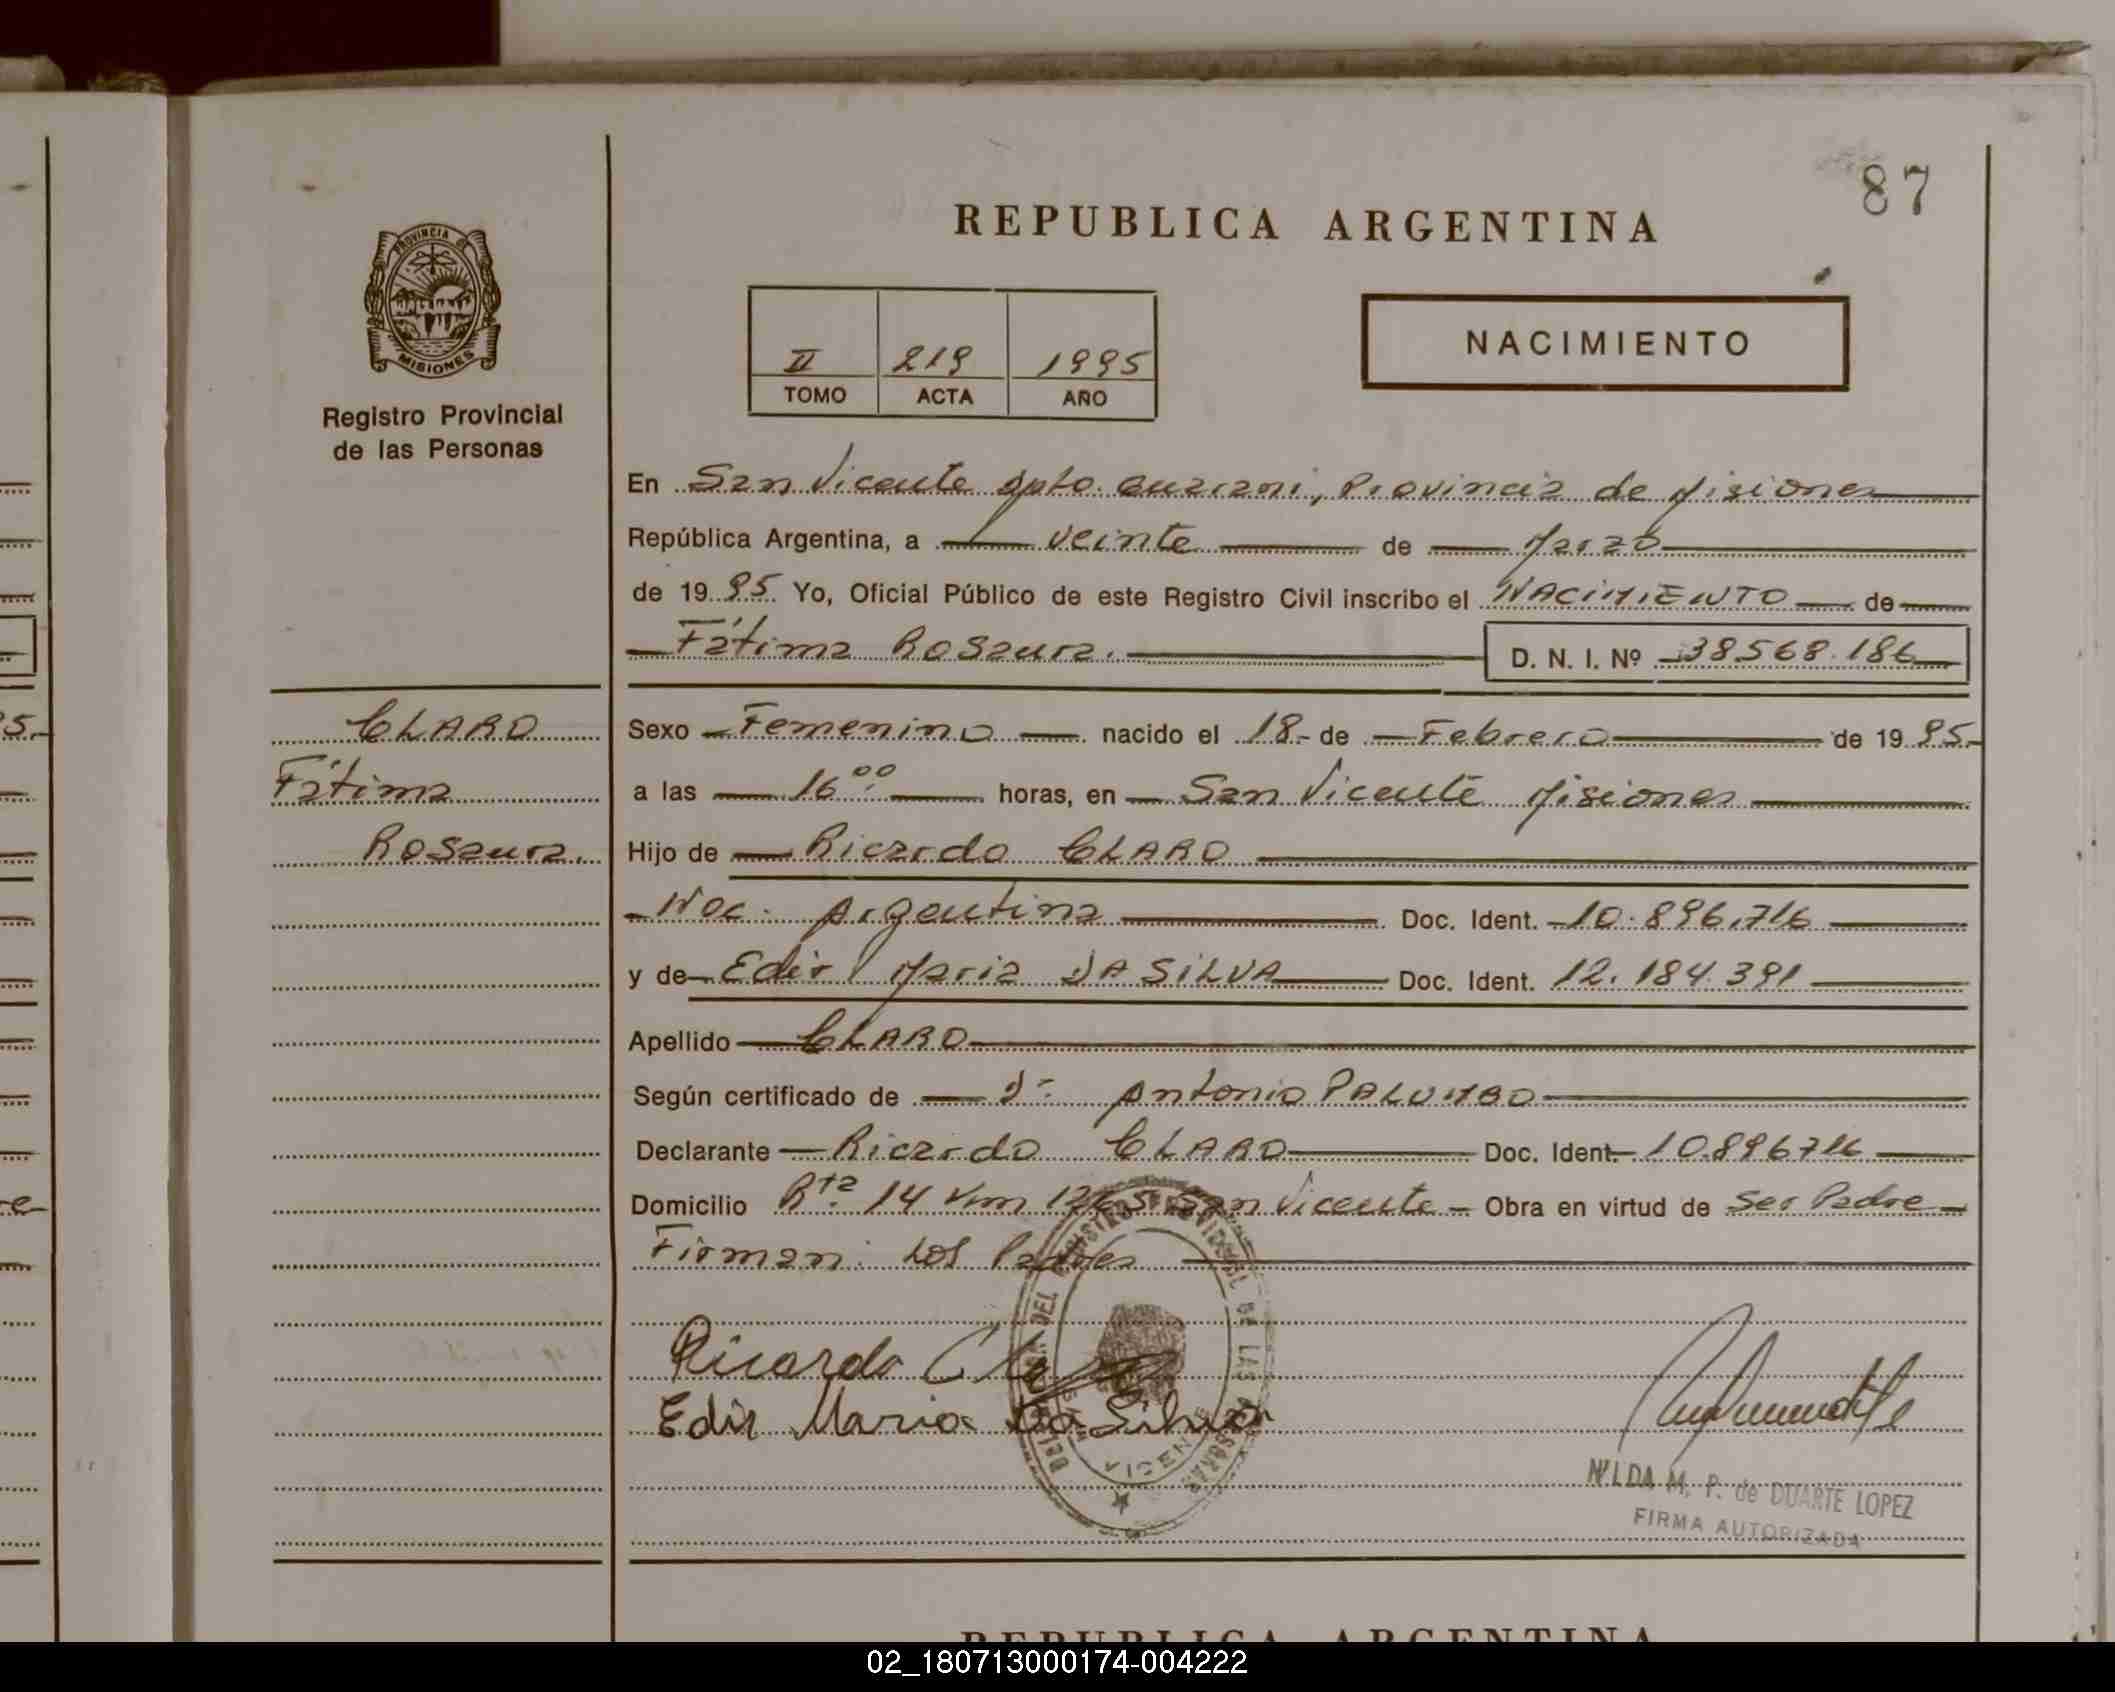 87
REPUBLICA ARGENTINA
PROVINCIA DE
MISIONES
Registro Provincial
de las Personas
II 219 1995
TOMO ACTA AÑO
NACIMIENTO
En San Vicente Dpto. Guarani, Provincia de Misiones
República Argentina, a veinte de Marzo
de 1995 Yo, Oficial Público de este Registro Civil inscribo el NACIMIENTO de
Fátima Rosaura. D. N. I. Nº 38.568.186
CLARO
Fátima
Rosaura.
Sexo Femenino nacido el 18- de Febrero de 1995.-
a las 16:00 horas, en San Vicente Misiones
Hijo de Ricardo CLARO
Nac. Argentina Doc. Ident. 10.896.716
y de Edir Maria DA SILVA Doc. Ident. 12.184.391
Apellido CLARO
Según certificado de Dr. Antonio PALUMBO
Declarante Ricardo CLARO Doc. Ident. 10.896716
Domicilio Rta. 14 Km San Vicente - Obra en virtud de Ser Padre
Firman: Los Padres
Ricardo Claro
Edir Maria Da Silva
NILDA M. P. de DUARTE LOPEZ
FIRMA AUTORIZADA
REPUBLICA ARGENTINA
02_180713000174-004222